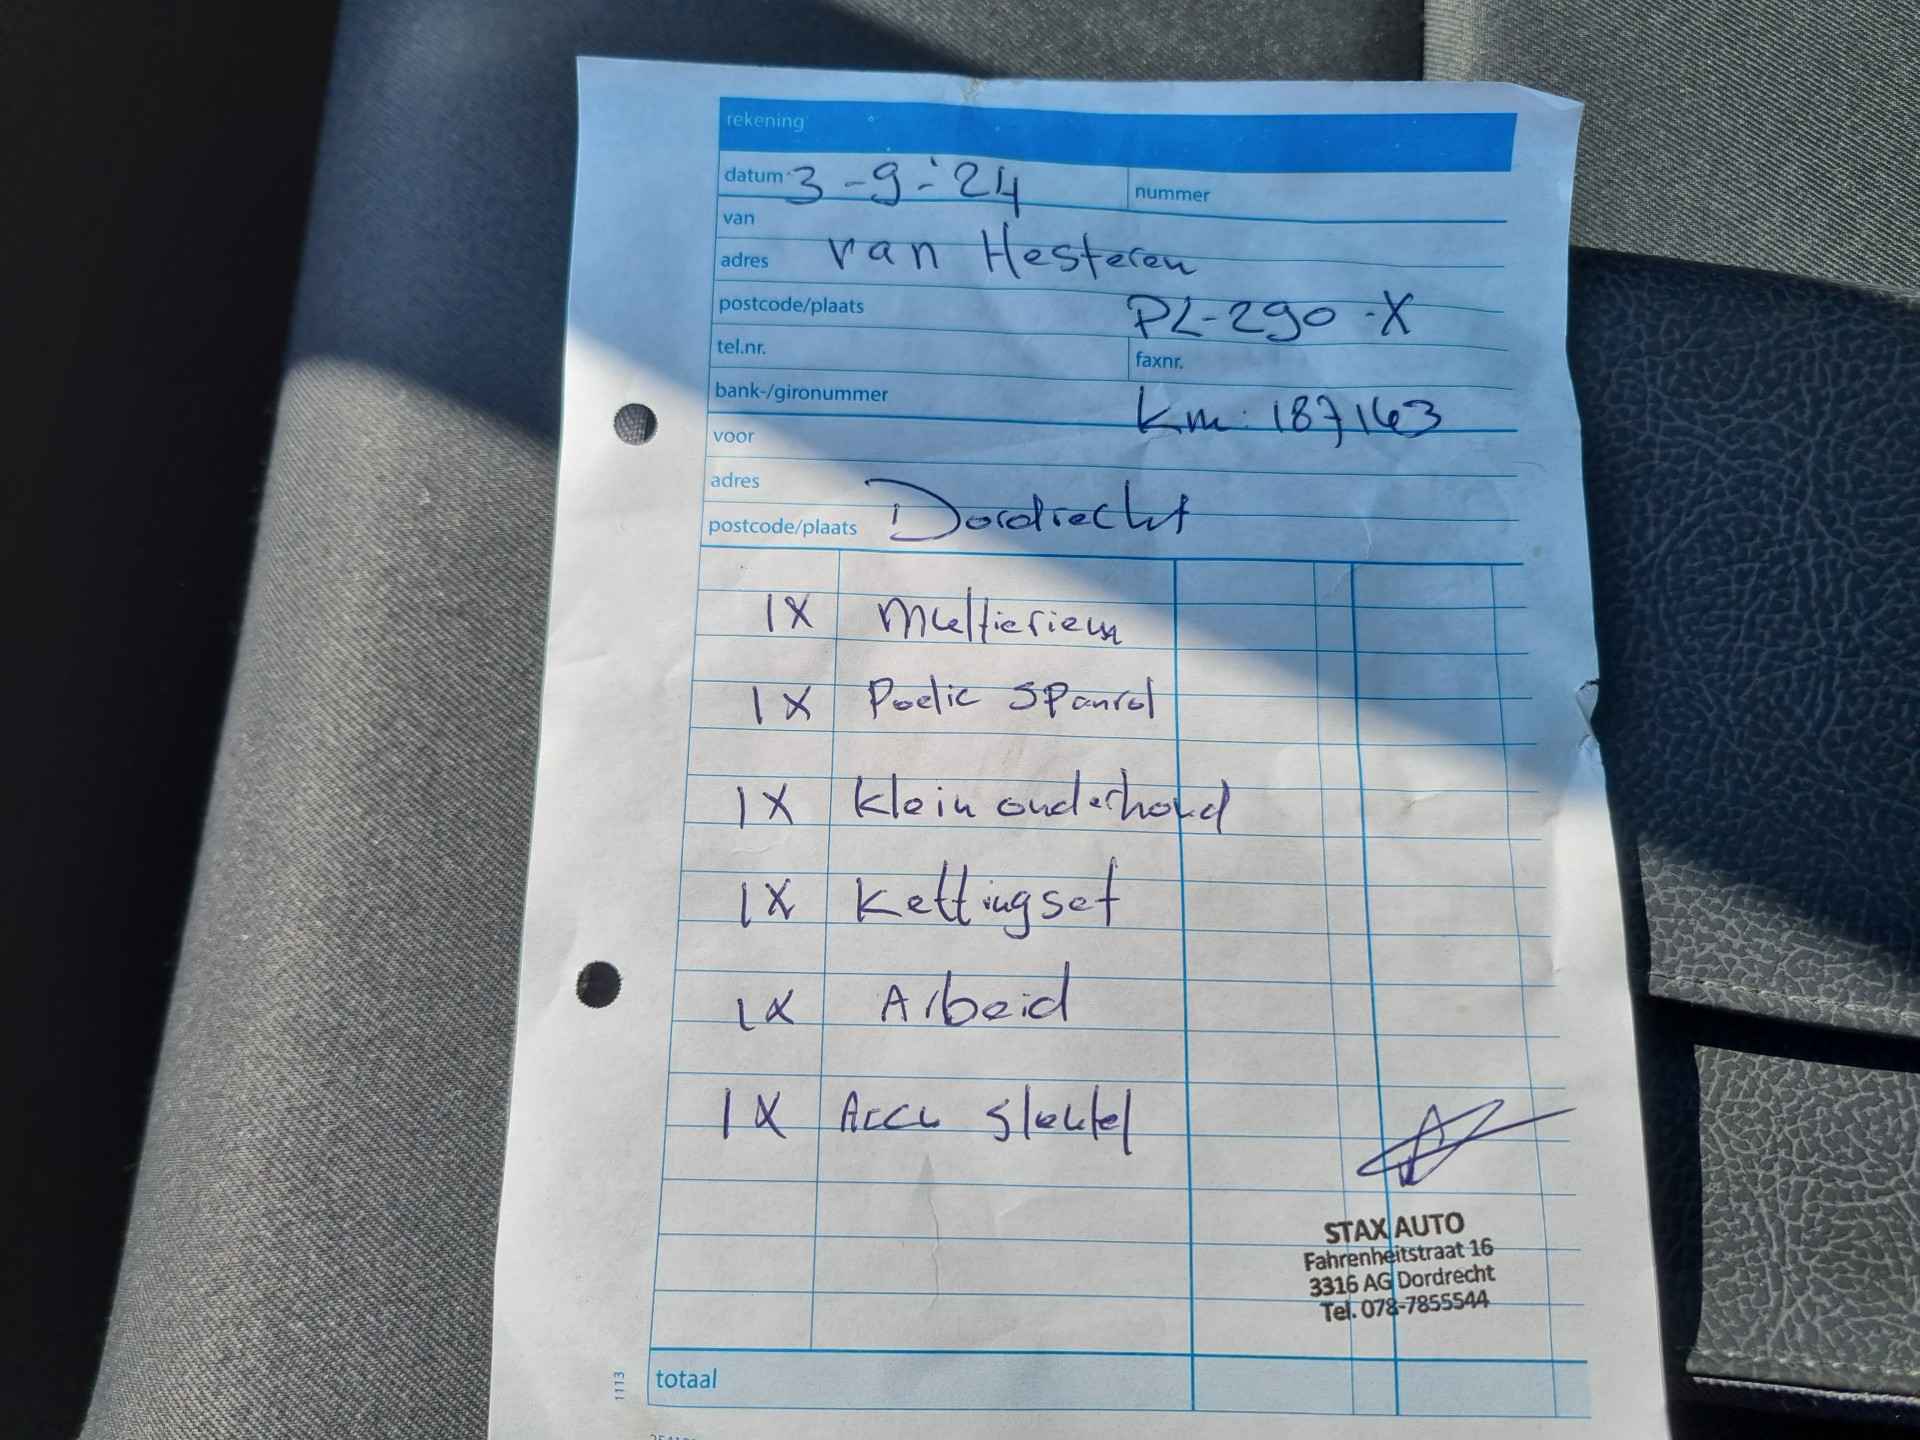 rekening
datum 3-9-'24 nummer
van
adres van Hesteren
postcode/plaats PL-290-X
tel.nr. faxnr.
bank-/gironummer Km: 187163
voor
adres
postcode/plaats Dordrecht
1X Multieriem
1X Poelie Spanrol
1X Klein onderhoud
1X Kettingset
1X Arbeid
1X Accu Sleutel
STAX AUTO
Fahrenheitstraat 16
3316 AG Dordrecht
Tel. 078-7855544
totaal
1113